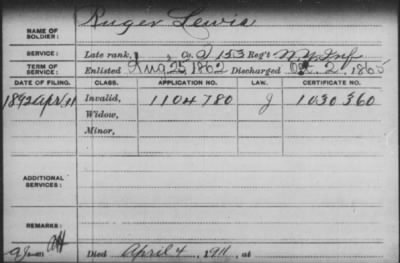 NAME OF SOLDIER: Auger Lewis
SERVICE: Late rank, Co. I 153 Reg't N.Y. Inf
TERM OF SERVICE: Enlisted Aug 25, 1862 Discharged Oct. 2, 1865
DATE OF FILING. CLASS. APPLICATION NO. LAW. CERTIFICATE NO.
1892 Apr 11 Invalid, 1104780 J 1030360
Widow,
Minor,
ADDITIONAL SERVICES:
REMARKS:
Died April 4, 1911, at